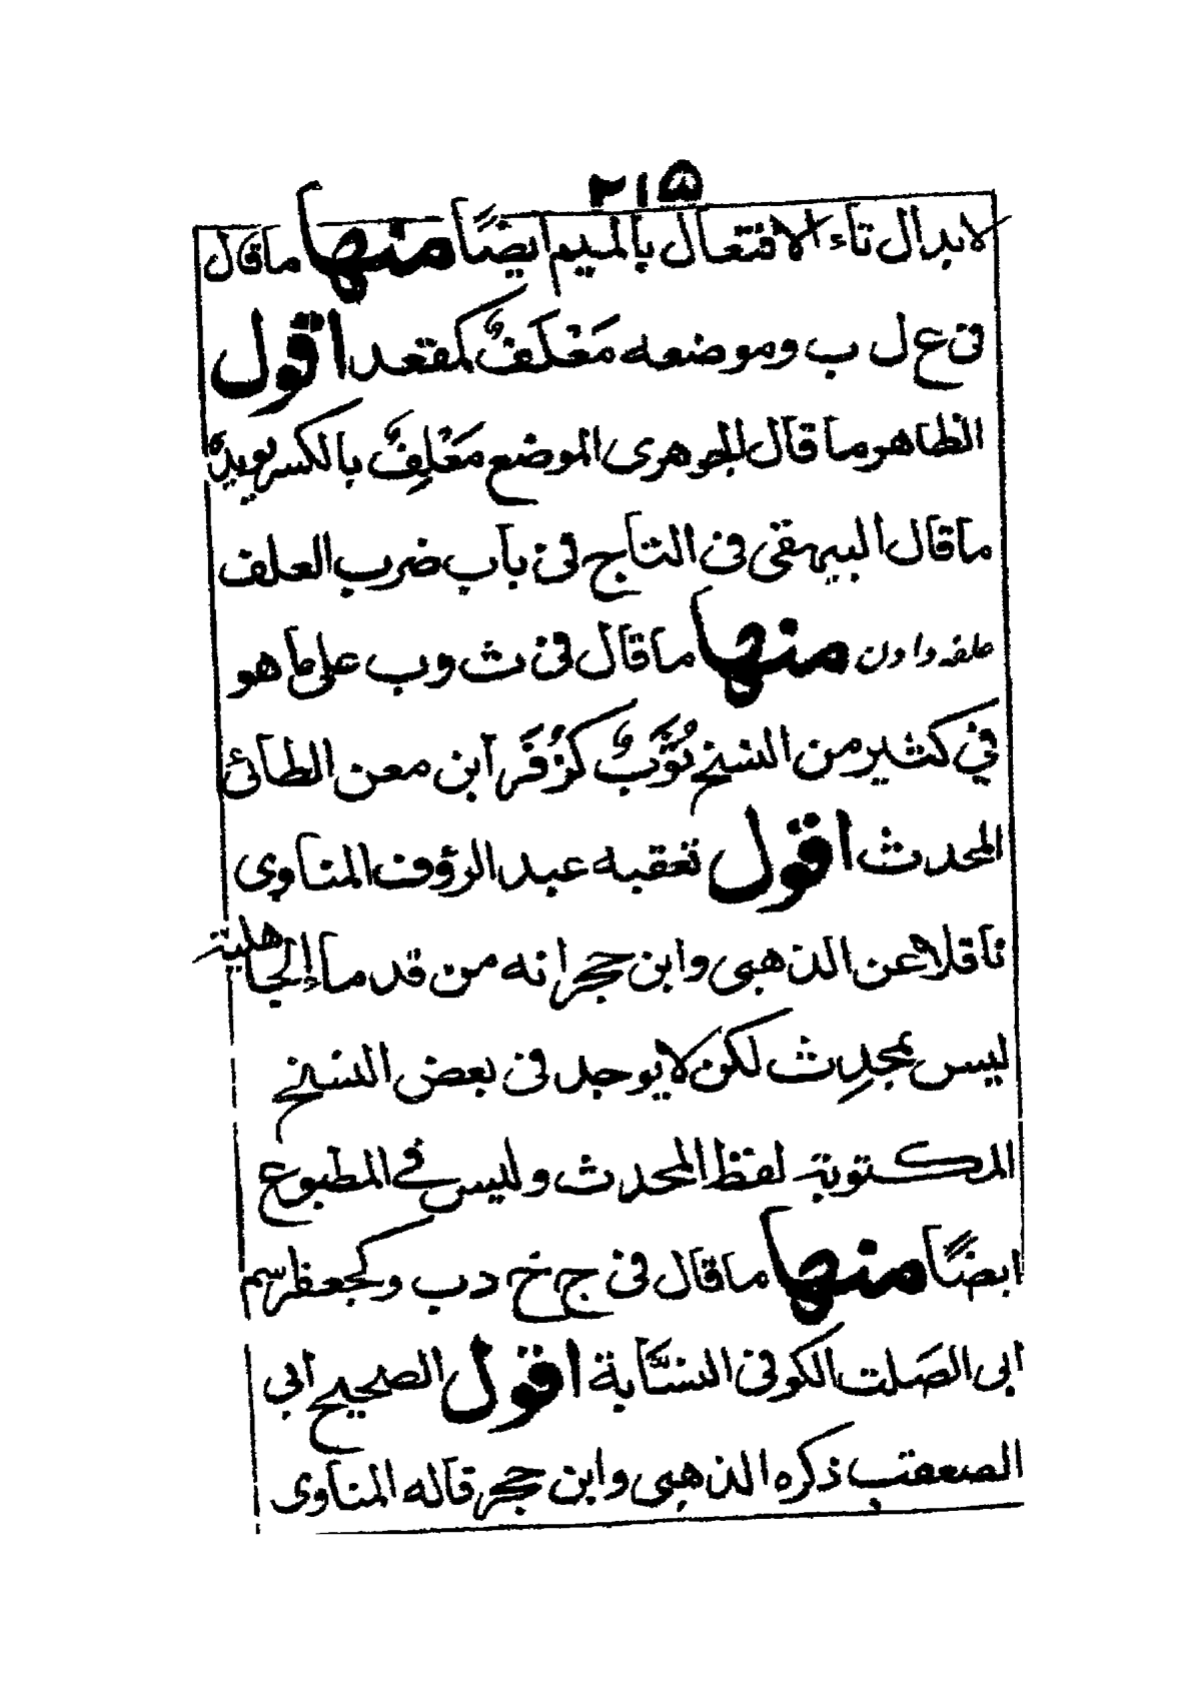 ٢١٥
لابدال تاء الافتعال بالميم ايضًا منها ماقال
فى ع ل ب وموضعه مَعْلَفٌ كمقعد اقول
الظاهر ما قال الجوهرى الموضع مَعْلِفٌ بالكسر يويده
ما قال البيهقى فى التاج فى باب ضرب العلف
علف دادن منها ماقال فى ث وب على ما هو
في كثير من النسخ ثُوَّبٌ كزُفَر ابن معن الطائى
المحدث اقول تعقبه عبد الرؤف المناوى
ناقلا عن الذهبى وابن حجر انه من قدماء الجاهلية
ليس بمحدِث لكن لايوجد فى بعض النسخ
المكتوبة لفظ المحدث وليس في المطبوع
ايضًا منها ماقال فى ج خ د ب وكجعفر اسم
ابى الصَلت الكوفى النسَّابة اقول الصحيح ابى
الصعقب ذكره الذهبى وابن حجر قاله المناوى